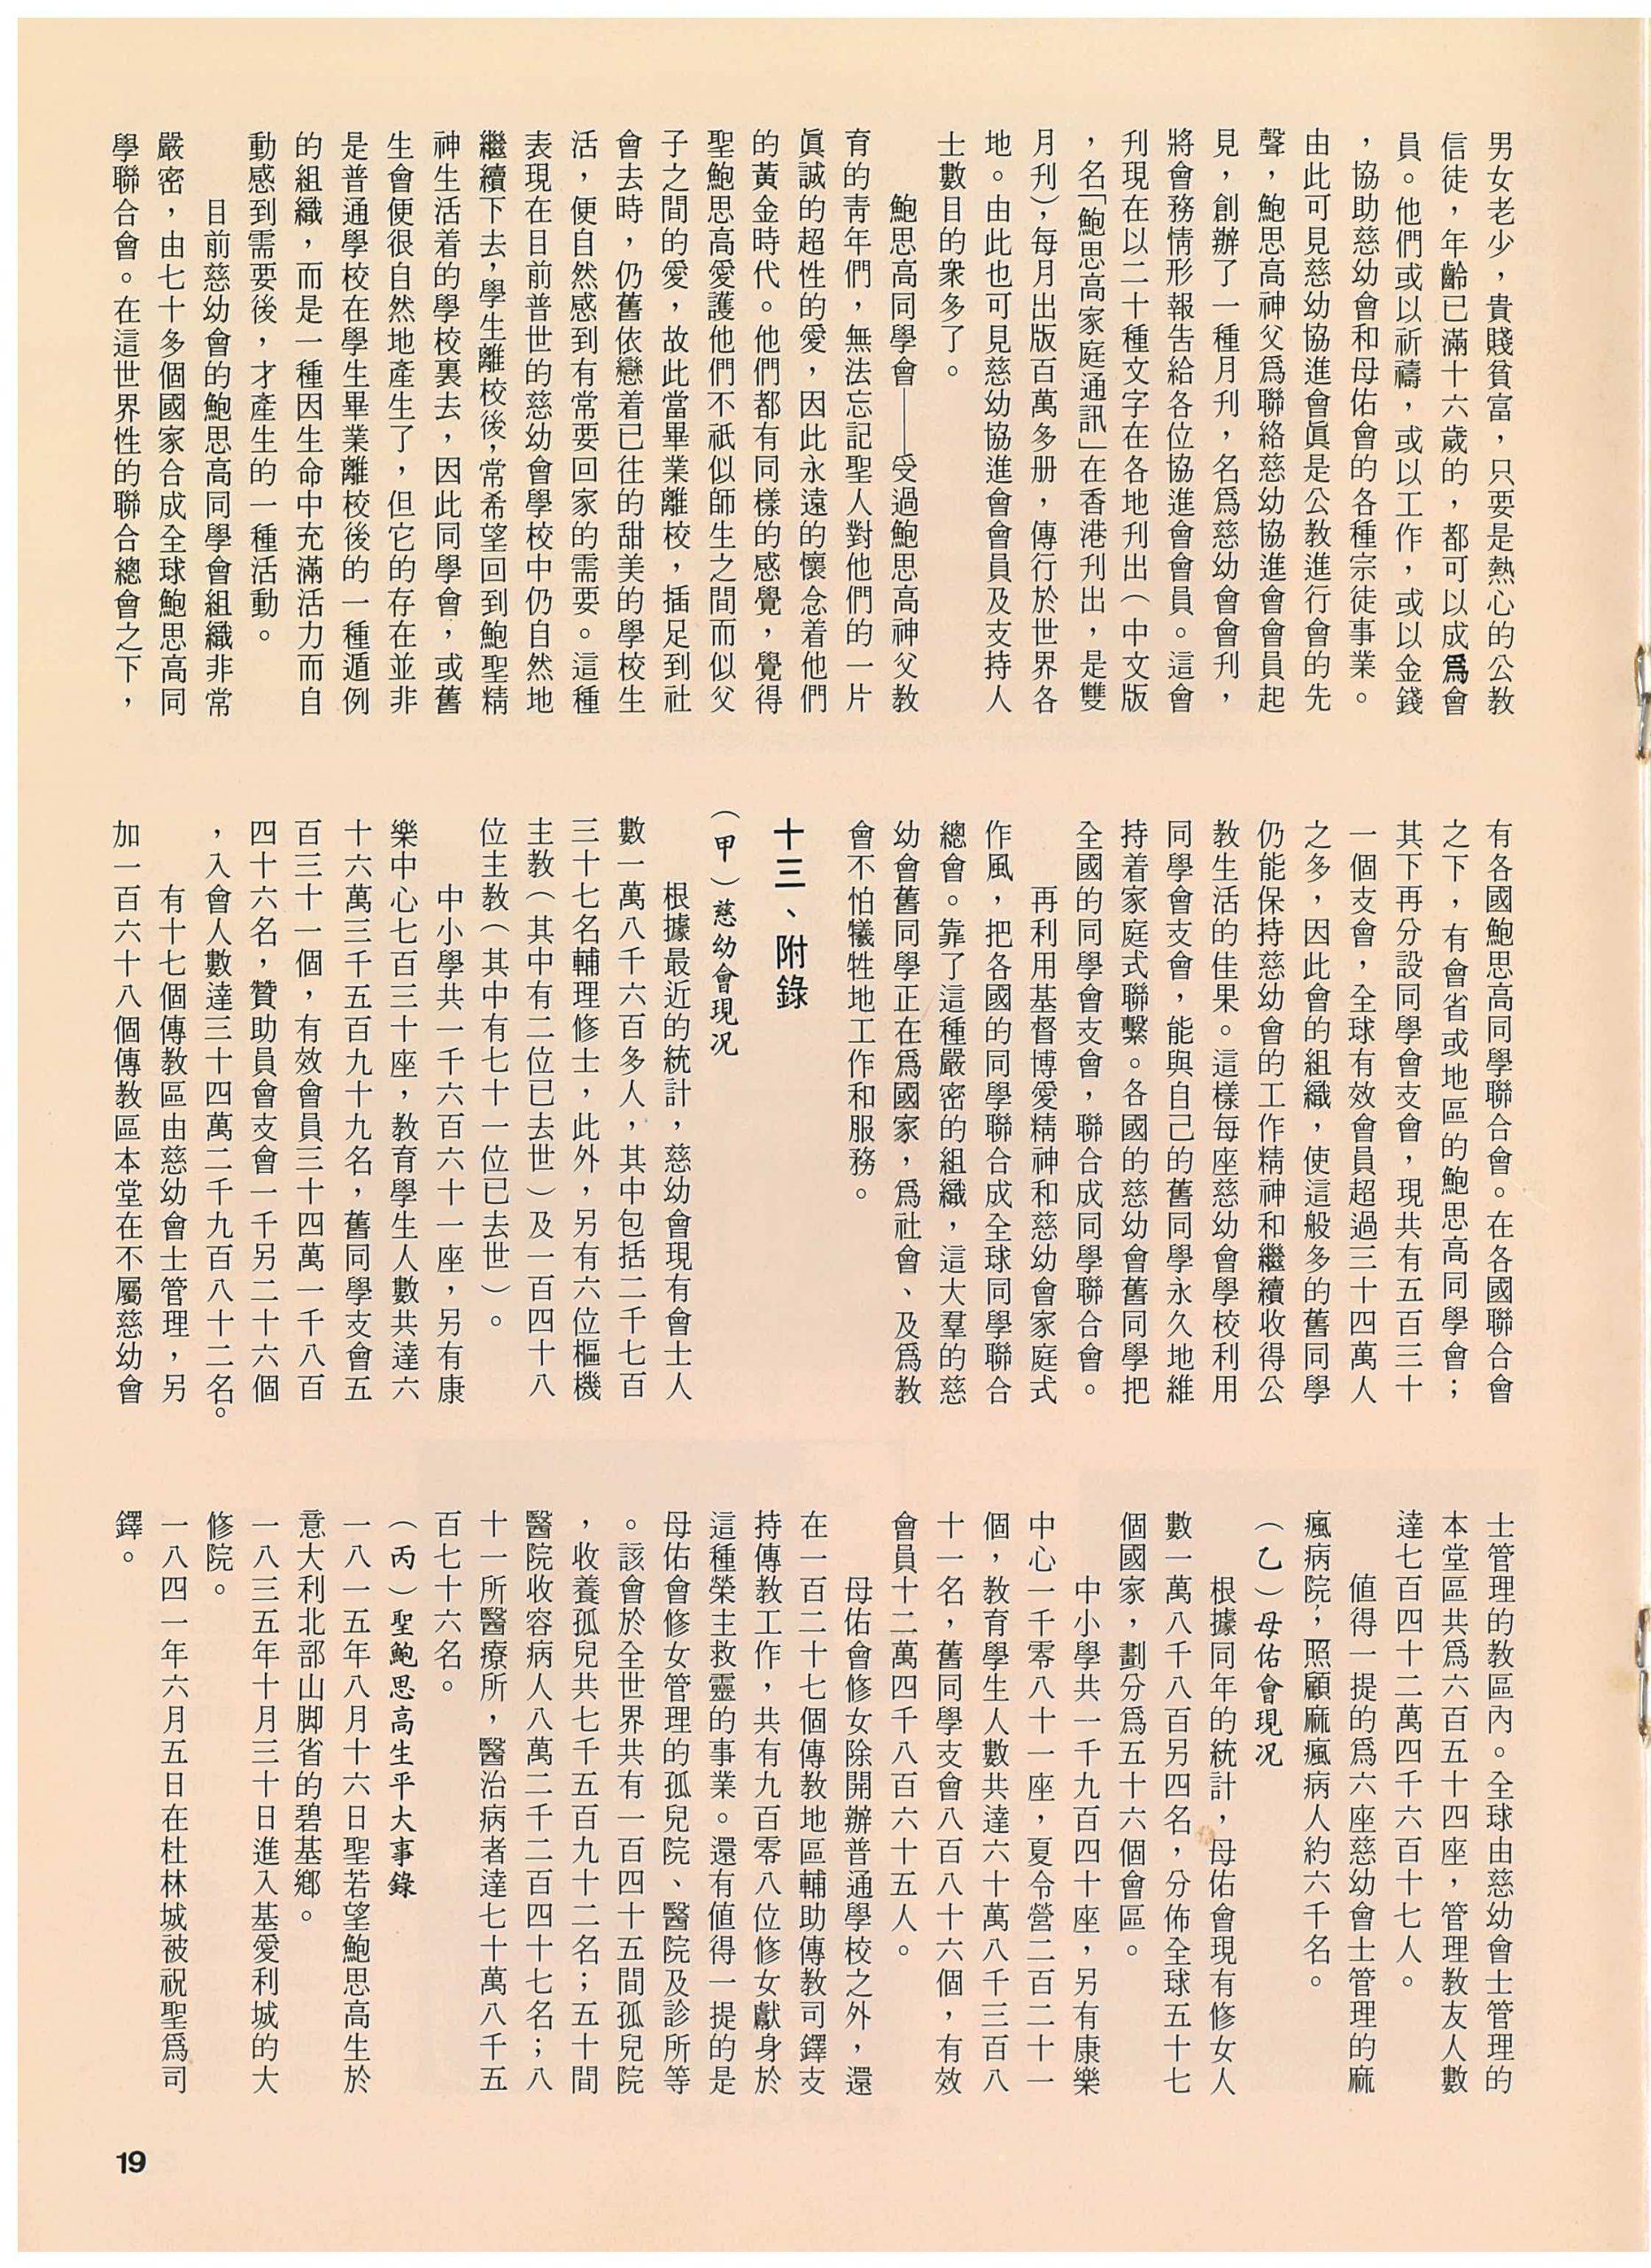 男女老少，貴賤貧富，只要是熱心的公教
信徒，年齡已滿十六歲的，都可以成爲會
員。他們或以祈禱，或以工作，或以金錢
，協助慈幼會和母佑會的各種宗徒事業。
由此可見慈幼協進會眞是公教進行會的先
聲，鮑思高神父爲聯絡慈幼協進會會員起
見，創辦了一種月刋，名爲慈幼會會刋，
將會務情形報告給各位協進會會員。這會
刋現在以二十種文字在各地刋出（中文版
，名「鮑思高家庭通訊」在香港刋出，是雙
月刋），每月出版百萬多册，傳行於世界各
地。由此也可見慈幼協進會會員及支持人
士數目的衆多了。
鮑思高同學會——受過鮑思高神父教
育的靑年們，無法忘記聖人對他們的一片
眞誠的超性的愛，因此永遠的懷念着他們
的黃金時代。他們都有同樣的感覺，覺得
聖鮑思高愛護他們不祇似師生之間而似父
子之間的愛，故此當畢業離校，插足到社
會去時，仍舊依戀着已往的甜美的學校生
活，便自然感到有常要回家的需要。這種
表現在目前普世的慈幼會學校中仍自然地
繼續下去，學生離校後，常希望回到鮑聖精
神生活着的學校裏去，因此同學會，或舊
生會便很自然地產生了，但它的存在並非
是普通學校在學生畢業離校後的一種遁例
的組織，而是一種因生命中充滿活力而自
動感到需要後，才產生的一種活動。
目前慈幼會的鮑思高同學會組織非常
嚴密，由七十多個國家合成全球鮑思高同
學聯合會。在這世界性的聯合總會之下，
有各國鮑思高同學聯合會。在各國聯合會
之下，有會省或地區的鮑思高同學會；
其下再分設同學會支會，現共有五百三十
一個支會，全球有效會員超過三十四萬人
之多，因此會的組織，使這般多的舊同學
仍能保持慈幼會的工作精神和繼續收得公
教生活的佳果。這樣每座慈幼會學校利用
同學會支會，能與自己的舊同學永久地維
持着家庭式聯繫。各國的慈幼會舊同學把
全國的同學會支會，聯合成同學聯合會。
再利用基督博愛精神和慈幼會家庭式
作風，把各國的同學聯合成全球同學聯合
總會。靠了這種嚴密的組織，這大羣的慈
幼會舊同學正在爲國家，爲社會、及爲教
會不怕犧牲地工作和服務。
十三、附錄
（甲）慈幼會現況
根據最近的統計，慈幼會現有會士人
數一萬八千六百多人，其中包括二千七百
三十七名輔理修士，此外，另有六位樞機
主教（其中有二位已去世）及一百四十八
位主教（其中有七十一位已去世）。
中小學共一千六百六十一座，另有康
樂中心七百三十座，教育學生人數共達六
十六萬三千五百九十九名，舊同學支會五
百三十一個，有效會員三十四萬一千八百
四十六名，贊助員會支會一千另二十六個
，入會人數達三十四萬二千九百八十二名。
有十七個傳教區由慈幼會士管理，另
加一百六十八個傳教區本堂在不屬慈幼會
士管理的教區內。全球由慈幼會士管理的
本堂區共爲六百五十四座，管理教友人數
達七百四十二萬四千六百十七人。
值得一提的爲六座慈幼會士管理的麻
瘋病院，照顧麻瘋病人約六千名。
（乙）母佑會現况
根據同年的統計，母佑會現有修女人
數一萬八千八百另四名，分佈全球五十七
個國家，劃分爲五十六個會區。
中小學共一千九百四十座，另有康樂
中心一千零八十一座，夏令營二百二十一
個，教育學生人數共達六十萬八千三百八
十一名，舊同學支會八百八十六個，有效
會員十二萬四千八百六十五人。
母佑會修女除開辦普通學校之外，還
在一百二十七個傳教地區輔助傳教司鐸支
持傳教工作，共有九百零八位修女獻身於
這種榮主救靈的事業。還有值得一提的是
母佑會修女管理的孤兒院、醫院及診所等
。該會於全世界共有一百四十五間孤兒院
，收養孤兒共七千五百九十二名；五十間
醫院收容病人八萬二千二百四十七名；八
十一所醫療所，醫治病者達七十萬八千五
百七十六名。
（丙）聖鮑思高生平大事錄
一八一五年八月十六日聖若望鮑思高生於
意大利北部山脚省的碧基鄉。
一八三五年十月三十日進入基愛利城的大
修院。
一八四一年六月五日在杜林城被祝聖爲司
鐸。
19